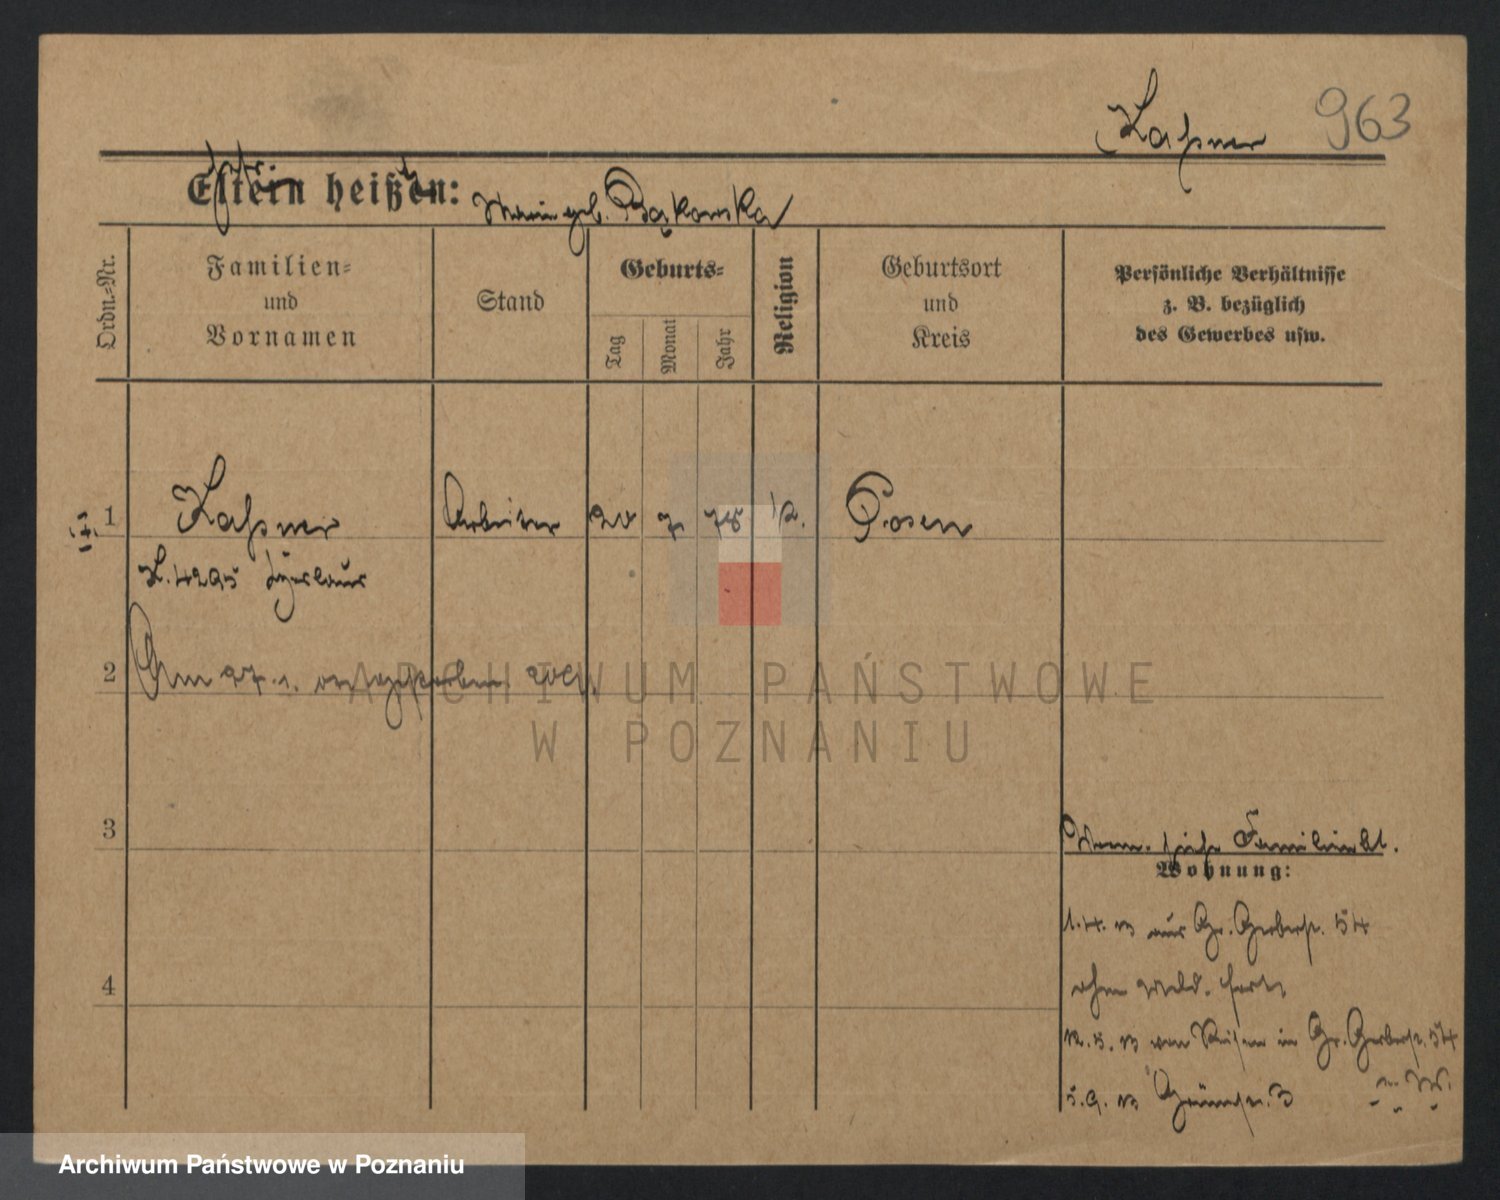 Kaßner 963
Eltern heißen: geb. Bąkowska
Ordn.-Nr.
Familien-
und
Vornamen
Stand
Geburts-
Tag
Monat
Jahr
Religion
Geburtsort
und
Kreis
Persönliche Verhältnisse
z. B. bezüglich
des Gewerbes usw.
1 Kaßner Arbeiter 20 7 78 k. Posen
L. 4295
2 Am 27. 1.
3
Familienbl.
Wohnung:
1. 4. 13 aus Gr. Gerberstr. 54
4
ohne Meld. fort
12. 5. 13 von Reisen in Gr. Gerberstr. 54
5. 9. 13 Grünestr. 3
ARCHIWUM PAŃSTWOWE
W POZNANIU
Archiwum Państwowe w Poznaniu